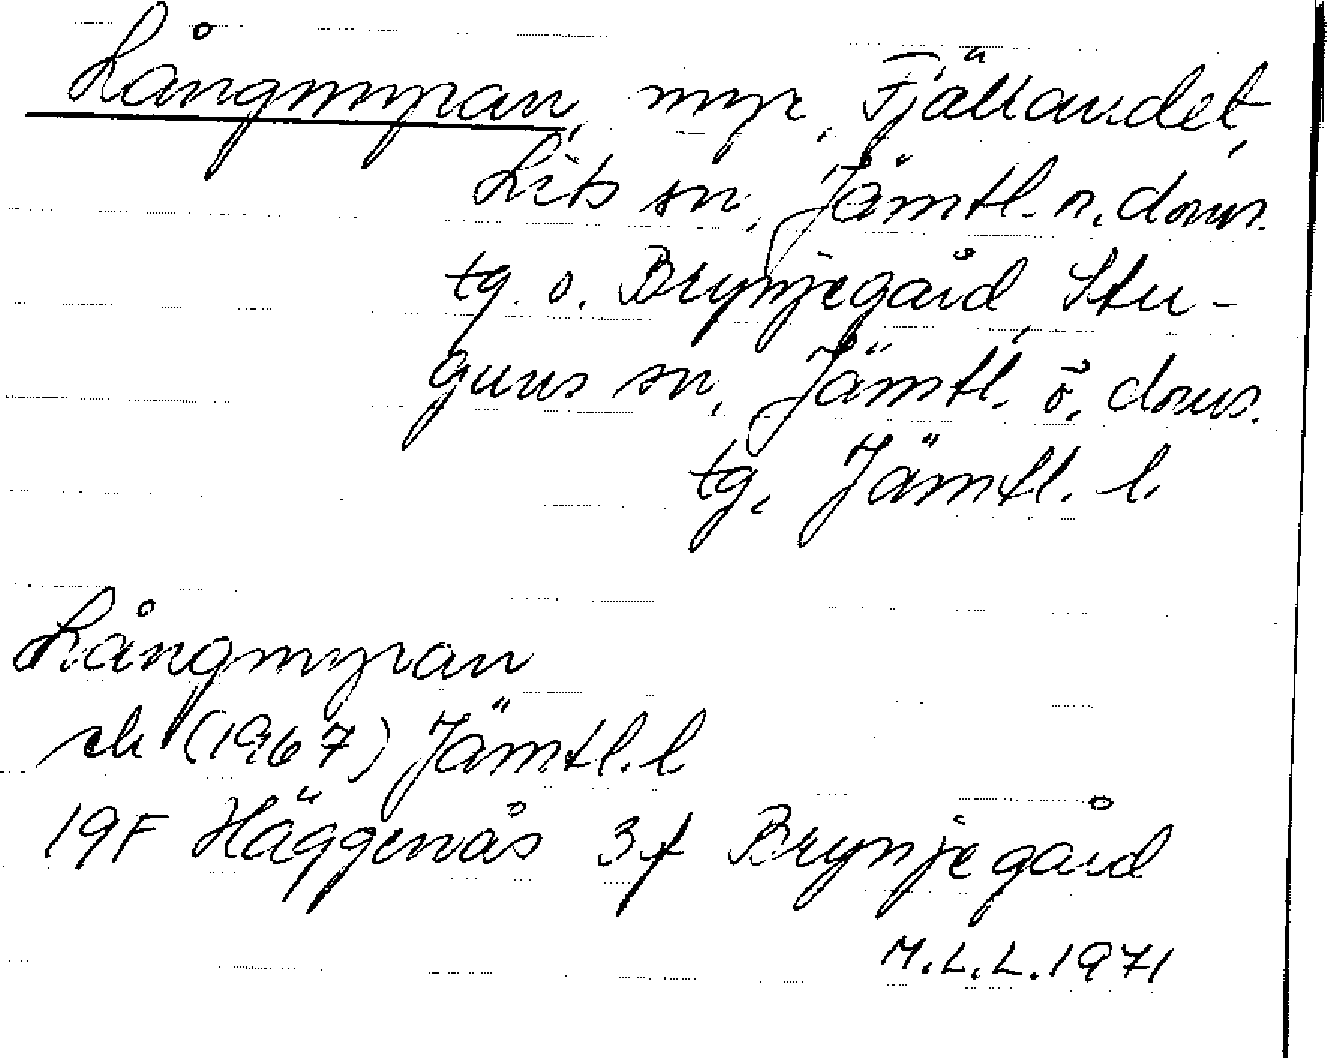 Långmyran, myr, Fjällandet,
Lits sn, Jämtl. n. doms.
tg. o. Brynjegård, Stu-
guns sn, Jämtl. ö. doms.
tg. Jämtl. l.
Långmyran
ek (1967) Jämtl. l
19F Häggenås 3f Brynjegård
M.L.L. 1971